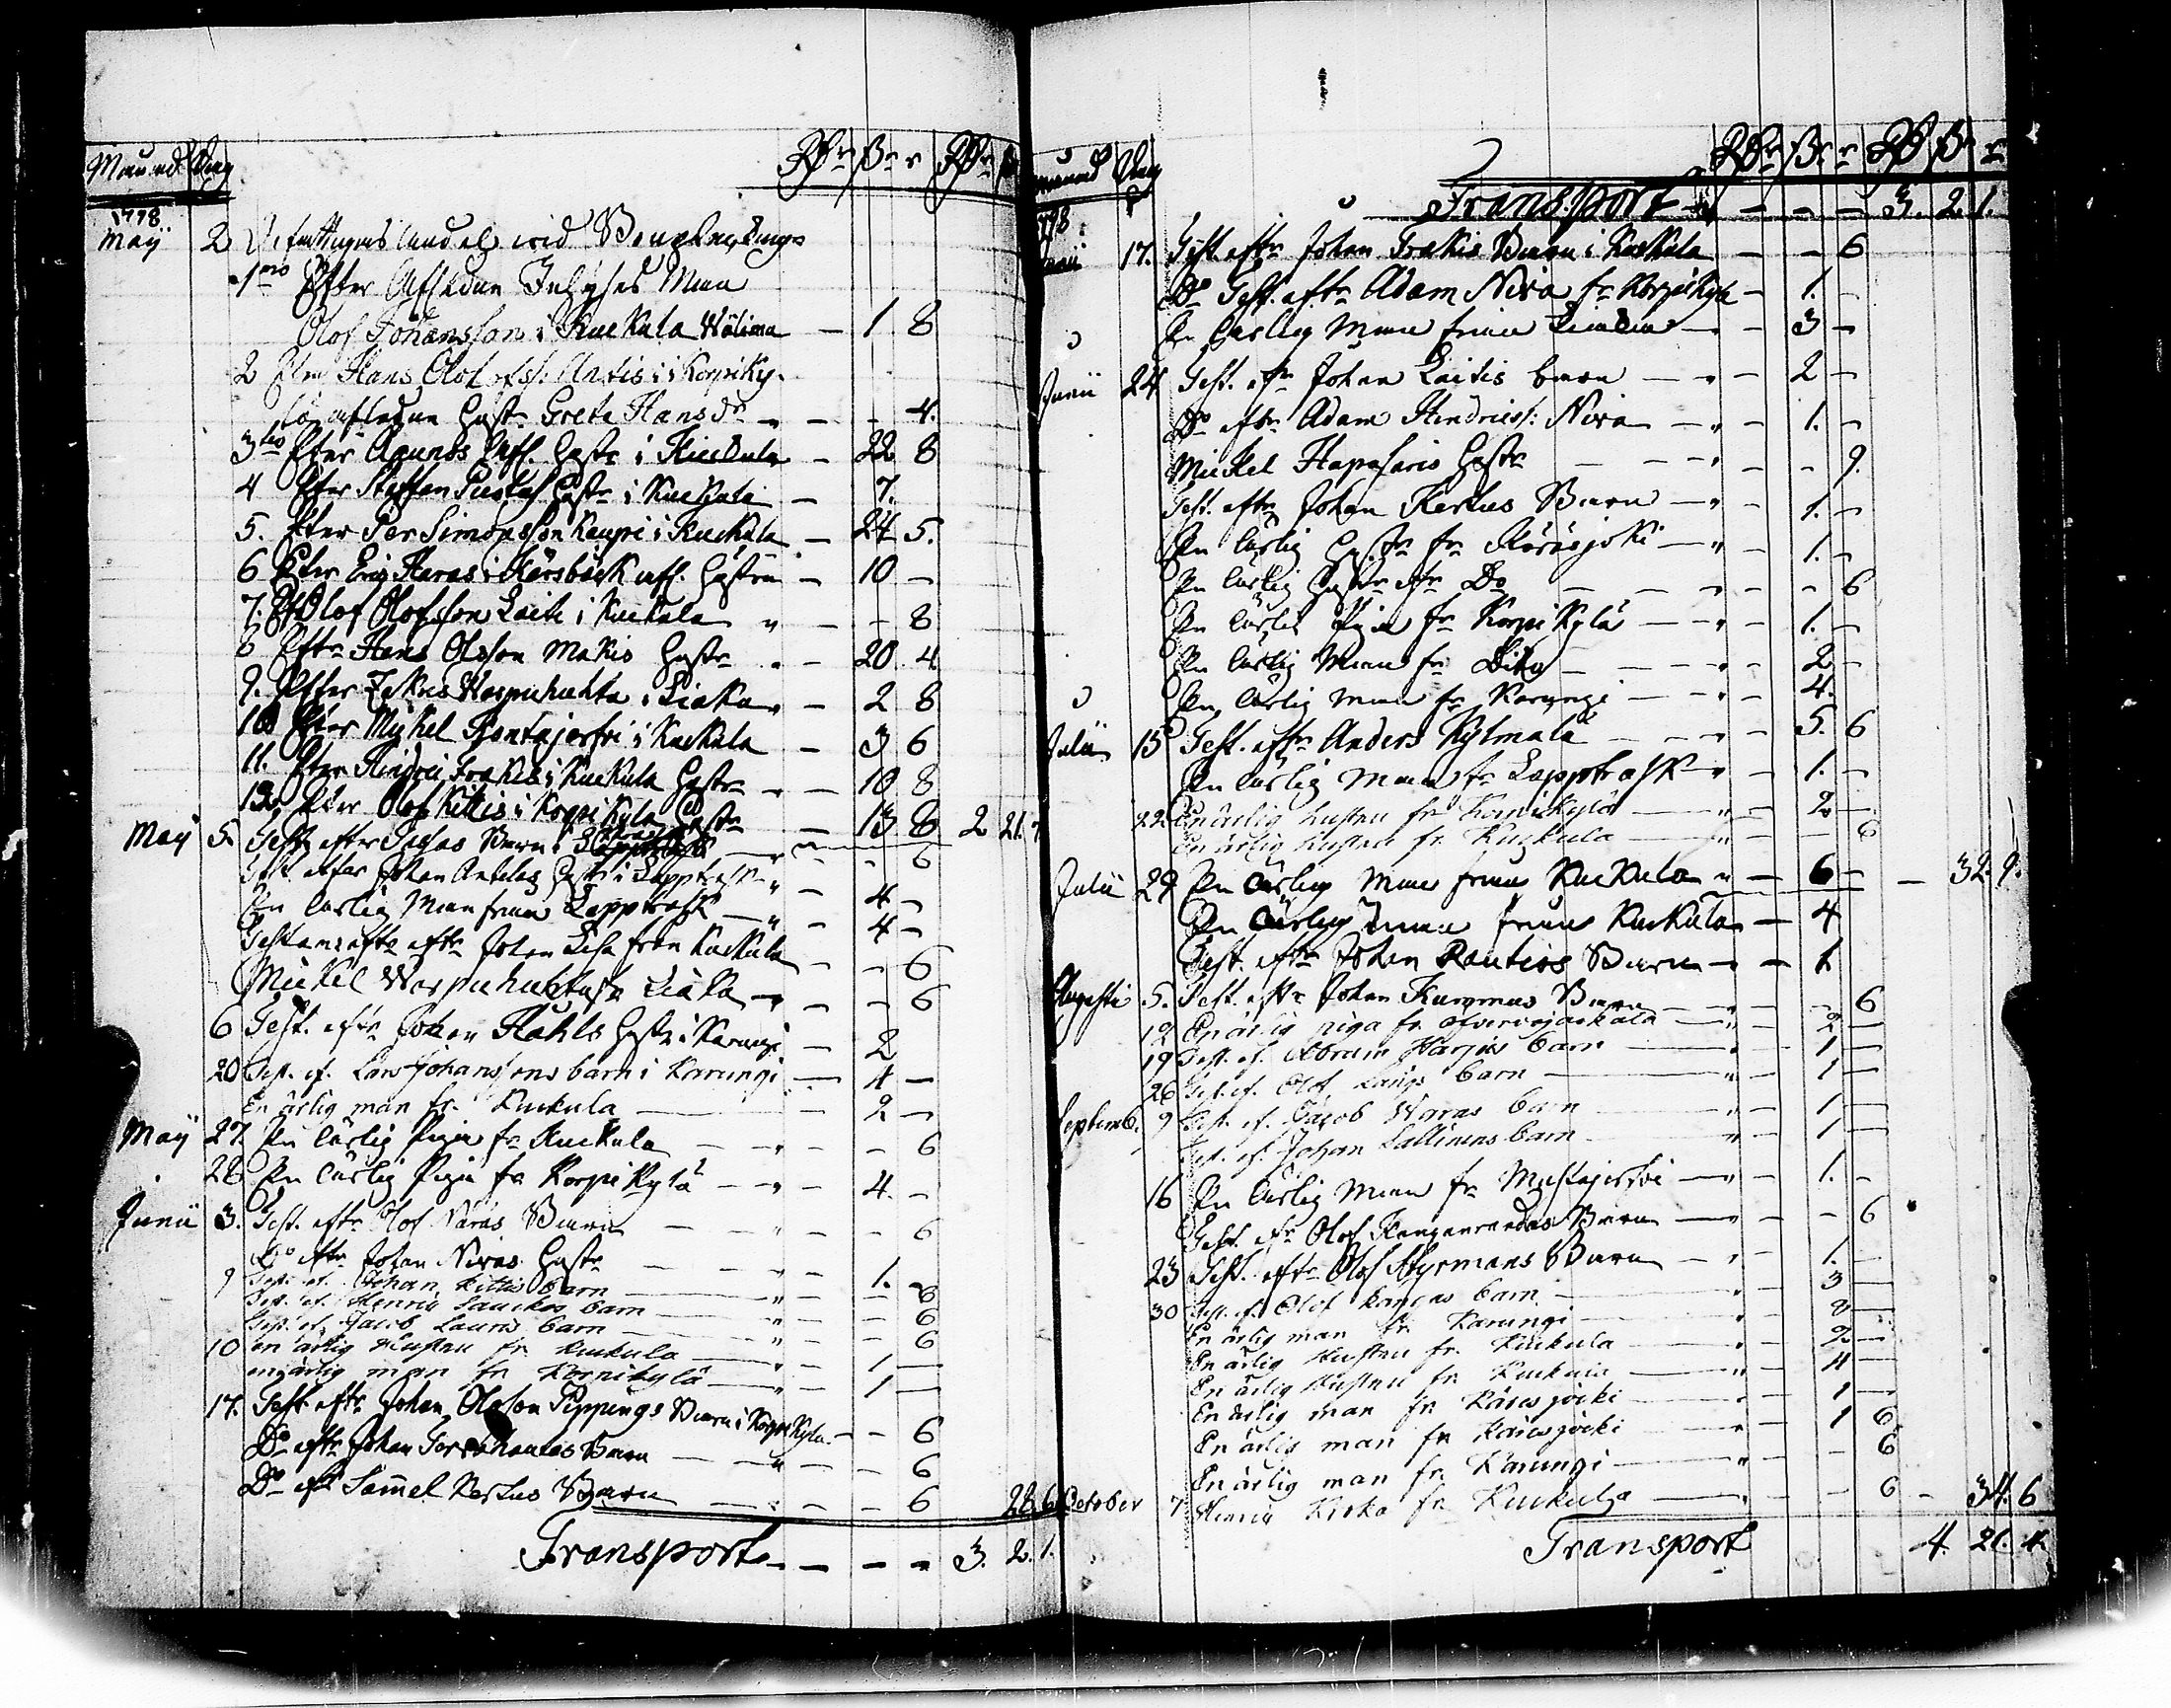 Månad Dag Rdr ßr r Rdr ß
1778
Maij 2
1mo Efter Afledne Inhyses Man
Olof Johansson i Kuckula Wälima — 1 8
2 Efter Hans Olofss: Antis i Korpiky-
lä afledne Hustr Greta Hansdr „ — — 4.
3tio Efter Hustr i Kuckula — 22 8
4 Efter Steffan Hustr i Kuckula — 7.
5. Efter Per Simonsson Kaupi i Kuckula — 24 5.
6 Efter Eric Haras i Kärsbäck afl. Hustru — 10 —
7. Eft Olof Olofsson Laiti i Kuckula „ — — 8
8 Eftr Hans Olsson Makis Hustr „ — 20 4
9. Efter Warpuhuhta i Liaka — 2 8
10 Efter Mickel Rontajerfvi i Kuckula — 3 6
11. Efter Hindric Frakis i Kuckula Hustr — 10 8
12. Efter Olof Kittis i Korpikyla Hustr — 13 8 2 21.
Maij 5. Test. efter Barn i — — 6
Test. efter Johan Antelas Hustr i Lapptresk „ — 4 —
En Ärlig Man från Lapptresk — „ — 4 —
Testam. efter Johan från Kuckula — — 6
Mickel Warpuhuhta fr Liaka — „ — — 6
6 Test. eftr Johan Ståhls Hustr i Karungi — 2
20 Test. ef. Lars Johanssons barn i Karungi — 4 —
En ärlig man fr. Kuckula — 2 —
Maij 27. En Ärlig Piga fr Kuckula — „ — — 6
28 En Ärlig Piga fr Korpikylä — „ — 4. —
Junii 3. Test. eftr Olof Naras Barn — „ — — 6
Do eftr Johan Niras Hustr — „ — 1. —
9 Test. ef. Johan Kittis barn — „ — — 6
Test. ef. Henric Lauckos barn — „ — — 6
Test. ef. Jacob Lauris barn — „ — — 6
10 en ärlig Hustru fr Kuckula — „ — 1 —
en ärlig man fr Korpikylä — „ — 1 —
17. Test. eftr Johan Olsson Pippings Barn i Korpikyla — — 6
Do eftr Johan Barn — „ — — 6
Do eftr Samel Kertus Barn — — — 6 28. 6
Transport — — — — 3. 2. 1.
Månad Dag Rdr ßr r Rd ßr r
Transport — — — 3. 2. 1.
1778
Junii 17. Test. eftr Johan Frakis Barn i Kuckula — — 6
Do Test. eftr Adam Niva fr Korpikyla — 1. —
En Ärlig Man från Liacka — — 3 —
Junii 24 Test. eftr Johan Laitis barn — „ — 2 —
Do eftr Adam Hindricss: Niva — „ — 1. —
Mickel Hapasaris Hustr — — „ — — 9.
Test. eftr Johan Kertus Barn — „ — 1. —
En Ärlig Hustr fr Räräsjoki — „ — 1. —
En Ärlig Hustr fr Do — — — — 6
En Ärlig Piga fr Korpikylä — „ — 1. —
En Ärlig Man fr — „ — 2 —
En Ärlig Man fr Karungi — „ — 4.
Julii 15 Test. eftr Anders Kylmala — „ — 5. 6
En Ärlig Man fr Lapptrask — „ — 1. —
22 En ärlig hustru fr Korpikylä — „ — 2 —
En ärlig hustru fr Kuckula — „ — — 6
Julii 29 En Ärlig Man från Kuckula „ — 6 — — 32. 9.
En Ärlig Man från Kuckula — 4
Test. eftr Johan Rautios Barn — — 1
Augusti 5. Test. eftr Johan Kurmus Barn — „ — — 6
12 En ärlig piga fr Öfvervojackala — „ — 2 —
19 Test. ef. Abram Harjus barn — „ — 1 —
26 Test. ef. Olof Längs barn — „ — 1 —
Septemb. 9 Test. ef. Jacob Waras barn — „ — 1 —
Test. ef. Johan Lallinens barn — „ — 1 —
16 En Ärlig Man fr Mustajerfvi — „ — 1. —
Test. eftr Olof Barn — — — 6
23 Test. eftr Olof Styrmans Barn — „ — 1. —
30 Test. ef. Olof Kangas barn — „ — 3 —
En ärlig man fr. Karungi — „ — 8 —
En ärlig Hustru fr. Kuckula — „ — 2 —
En ärlig Hustru fr. Kuckula — „ — 4 —
En ärlig man fr Räräsjocki — „ — 1 —
En ärlig man fr Räräsjocki — „ — 1 6
En ärlig man fr. Karungi — „ — — 6
October 7 Henric Kirka fr Kuckula — — — 6 — 34. 6
Transport 4. 21. 4.